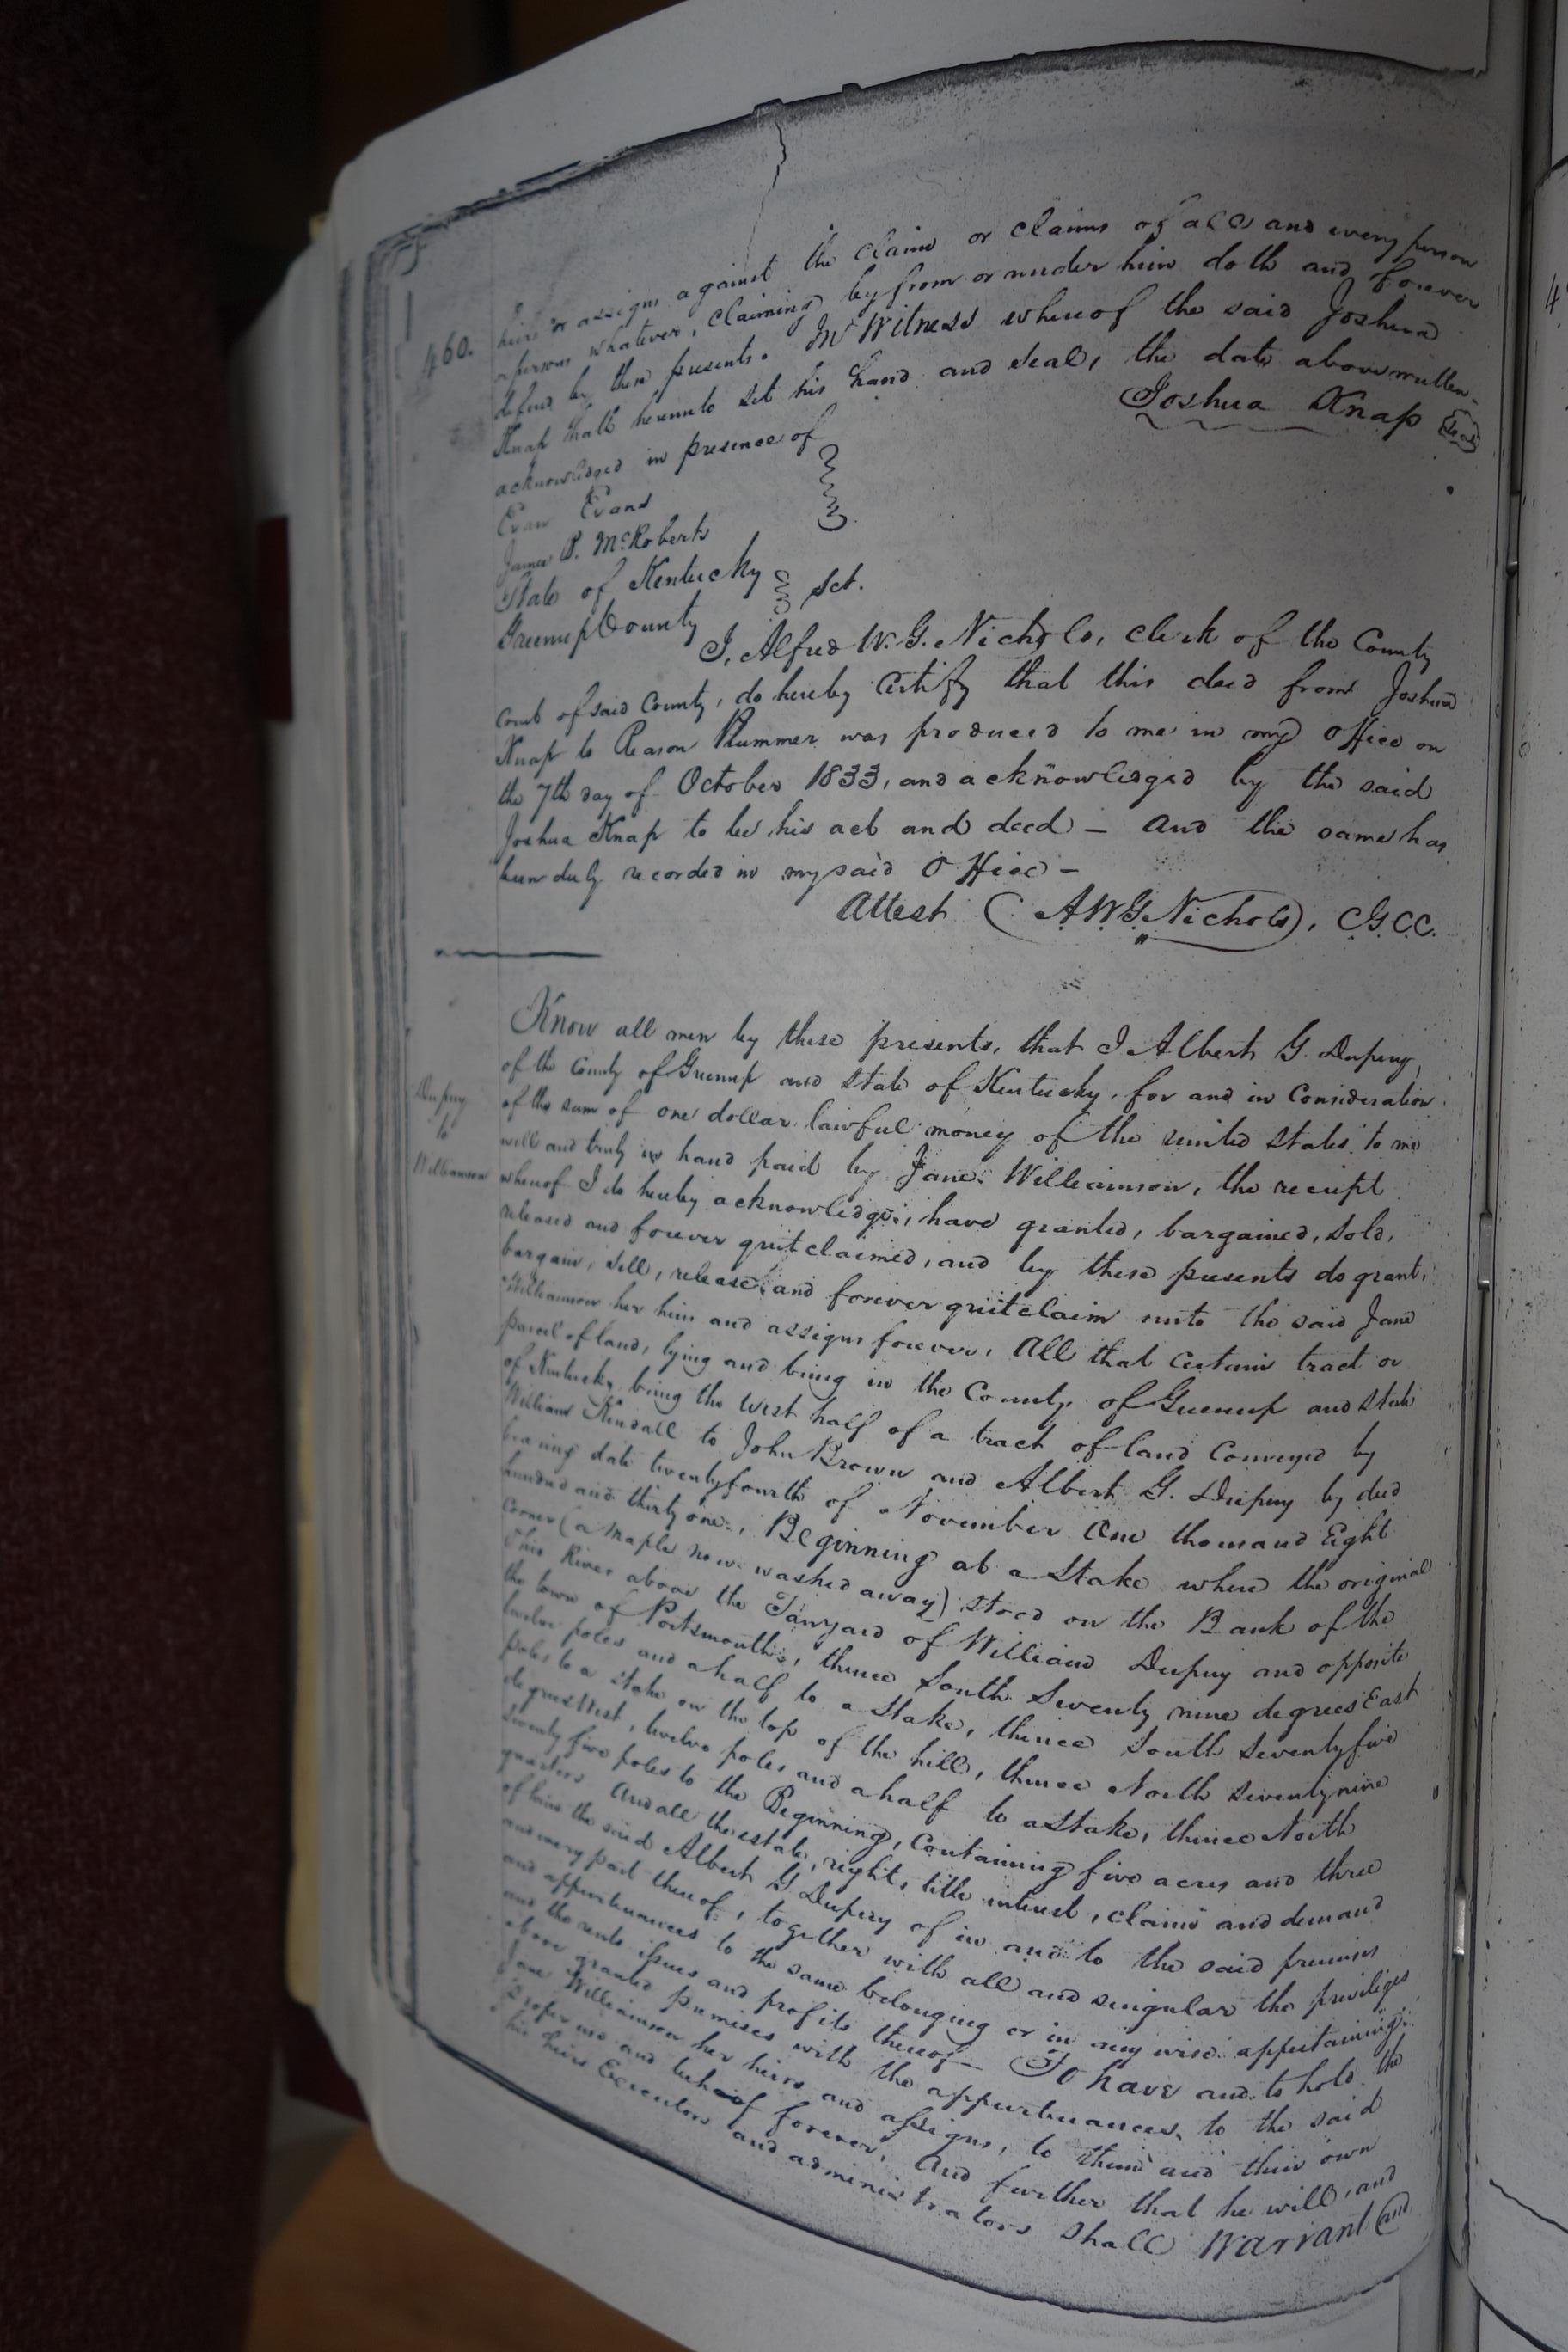 460.
heirs or assigns against the claim or claims of all and every person
or persons whatever, claiming by from or under him doth and forever
defend by these presents. In Witness whereof the said Joshua
Knap hath hereunto set his hand and seal, the date above written.
Joshua Knap Seal
acknowledged in presence of
Evan Evans
James P. McRoberts
State of Kentucky
Greenup County Sct.
I, Alfred W. G. Nichols, clerk of the County
Court of said County, do hereby certify that this deed from Joshua
Knap to Reason Plummer was produced to me in my office on
the 7th day of October 1833, and acknowledged by the said
Joshua Knap to be his act and deed — and the same has
been duly recorded in my said Office —
Attest A W G Nichols, C.G.C.C.
Dupuy
to
Williamson
Know all men by these presents, that I Albert G. Dupuy,
of the County of Greenup and state of Kentucky, for and in Consideration
of the sum of one dollar lawful money of the united states to me
well and truly in hand paid by Jane Williamson, the receipt
whereof I do hereby acknowledge, have granted, bargained, sold,
released and forever quitclaimed, and by these presents do grant,
bargain, sell, release, and forever quitclaim unto the said Jane
Williamson her heirs and assigns forever, All that certain tract or
parcel of land, lying and being in the County of Greenup and state
of Kentucky being the West half of a tract of land conveyed by
William Kendall to John Brown and Albert G. Dupuy by deed
bearing date twentyfourth of November One thousand Eight
hundred and thirty one, Beginning at a Stake where the original
corner (a Maple now washed away) stood on the Bank of the
Ohio River above the Tanyard of William Dupuy and opposite
the town of Portsmouth, thence South Seventy nine degrees East
twelve poles and a half to a Stake, thence South Seventy five
poles to a stake on the top of the hill, thence North Seventy nine
degrees West, twelve poles and a half to a Stake, thence North
Seventy five poles to the Beginning, containing five acres and three
quarters And all the estate, right, title interest, claim and demand
of him the said Albert G Dupuy of in and to the said premises
and every part thereof, together with all and singular the priviliges
and appurtenances to the same belonging or in any wise appertaining,
and the rents issues and profits thereof — To have and to hold the
above granted premises with the appurtenances, to the said
Jane Williamson her heirs and assigns, to them and their own
proper use and behoof forever, And further that he will, and
his heirs Executors and administrators shall Warrant and